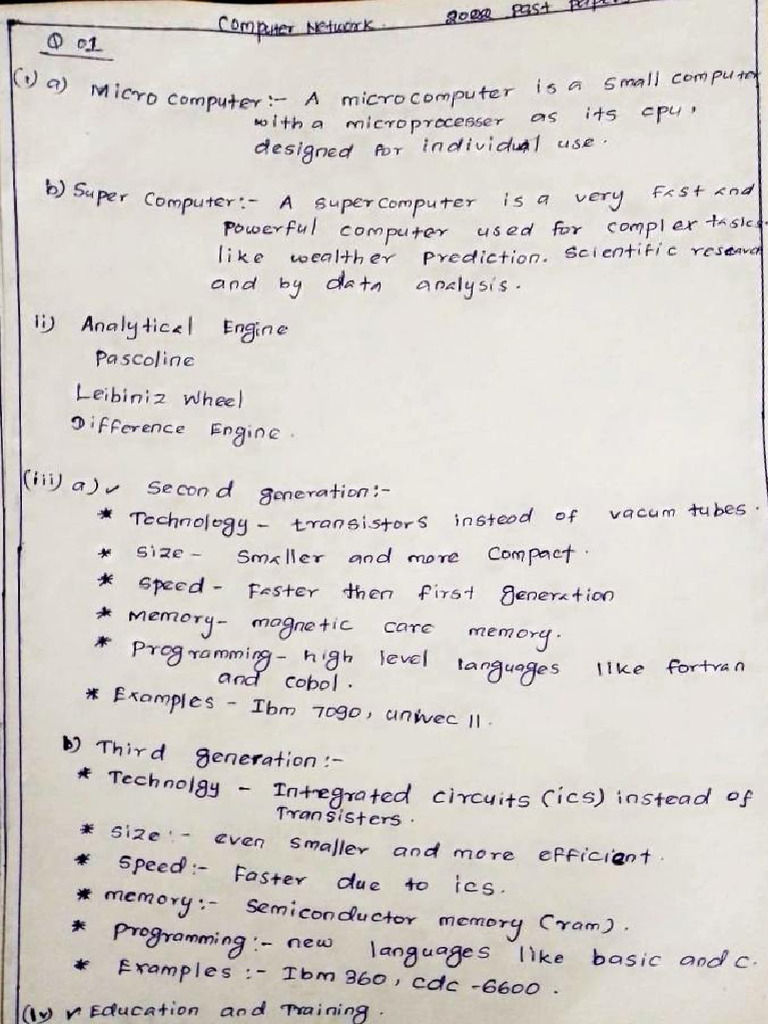 Computer Network. 2022 Past Papers
Q 01
(i) a) Micro computer:- A microcomputer is a small computer
with a microprocesser as its cpu,
designed for individual use.
b) Super Computer:- A supercomputer is a very fast and
powerful computer used for complex tasks
like wealther prediction. scientific research
and by data analysis.
ii) Analytical Engine
Pascoline
Leibiniz Wheel
Difference Engine.
(iii) a) ✓ Second generation:-
* Technology - transistors instead of vacum tubes.
* Size - Smaller and more Compact.
* Speed - Faster then first generation
* Memory - magnetic care memory.
* Programming - high level languages like fortran
and cobol.
* Examples - Ibm 7090, univec II.
b) Third generation:-
* Technolgy - Integrated circuits (ics) instead of
Transisters.
* Size:- even smaller and more efficient.
* Speed:- Faster due to ics.
* memory:- semiconductor memory (ram).
* programming:- new languages like basic and c.
* Examples:- Ibm 360, cdc -6600.
(iv) ✓ Education and Training.